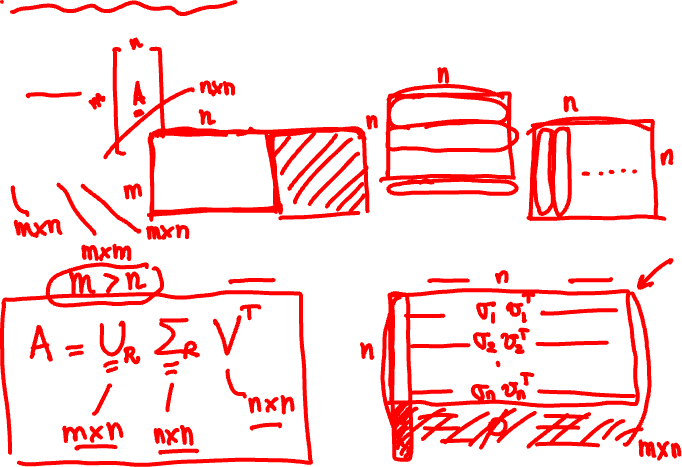 n
m A
n×n
n
m
m×n
m×m
m×n
n
n
n
n
m > n
A = U_R Σ_R V^T
m×n n×n n×n
n
n
σ₁ v₁^T
σ₂ v₂^T
.
σₙ vₙ^T
m×n